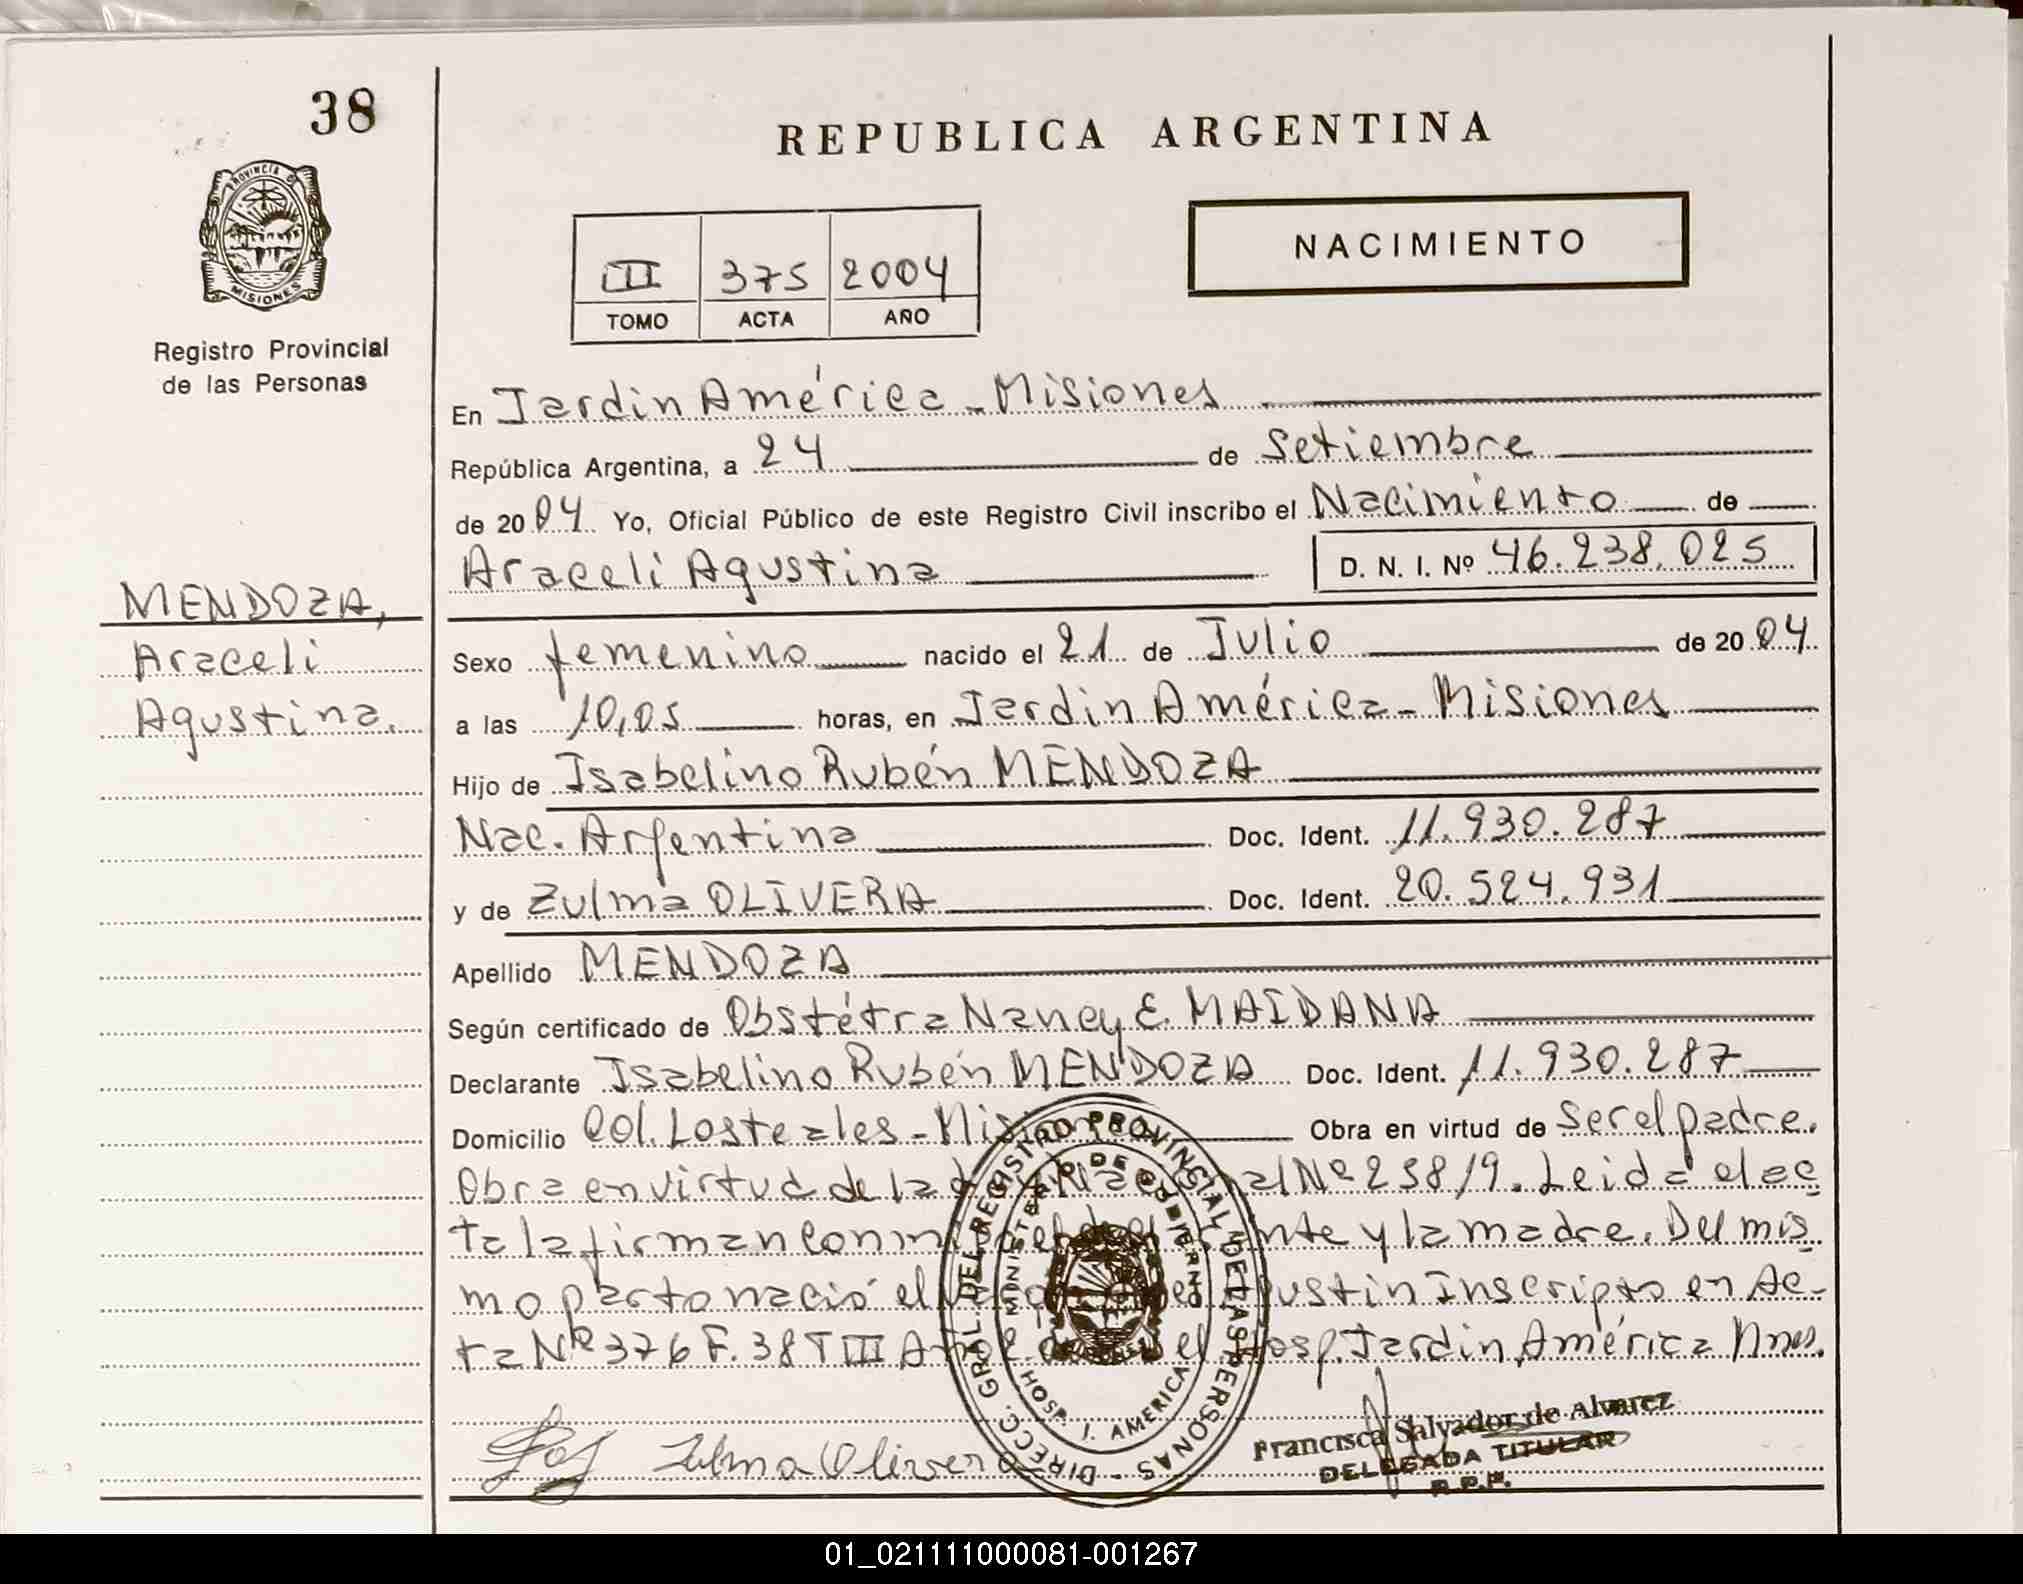 38
REPUBLICA ARGENTINA
PROVINCIA DE
MISIONES
Registro Provincial
de las Personas
NACIMIENTO
III 375 2004
TOMO ACTA AÑO
En Jardin América - Misiones
República Argentina, a 24 de Setiembre
de 2004 Yo, Oficial Público de este Registro Civil inscribo el Nacimiento de
Araceli Agustina D. N. I. Nº 46.238.025
MENDOZA,
Araceli
Agustina.
Sexo femenino nacido el 21 de Julio de 2004
a las 10,05 horas, en Jardin América - Misiones
Hijo de Isabelino Rubén MENDOZA
Nac. Argentina Doc. Ident. 11.930.287
y de Zulma OLIVERA Doc. Ident. 20.524.931
Apellido MENDOZA
Según certificado de Obstétra Nancy E. MAIDANA
Declarante Isabelino Rubén MENDOZA Doc. Ident. 11.930.287
Domicilio Col. Los teales - Obra en virtud de Ser el padre.
Obra en virtud de la Nº 238/9. Leida el ac
ta la firman conmigo el y la madre. Del mis
mo parto nació el Inscripto en Ac-
ta Nº 376 F. 38 T III Hosp. Jardin América Mnes.
DIRECC. GRAL. DEL REGISTRO PROVINCIAL DE LAS PERSONAS
MINISTERIO DE GOBIERNO
HOSP. J. AMERICA
Zulma Olivera
Francisca Salvador de Alvarez
DELEGADA TITULAR
R.P.P.
01_021111000081-001267